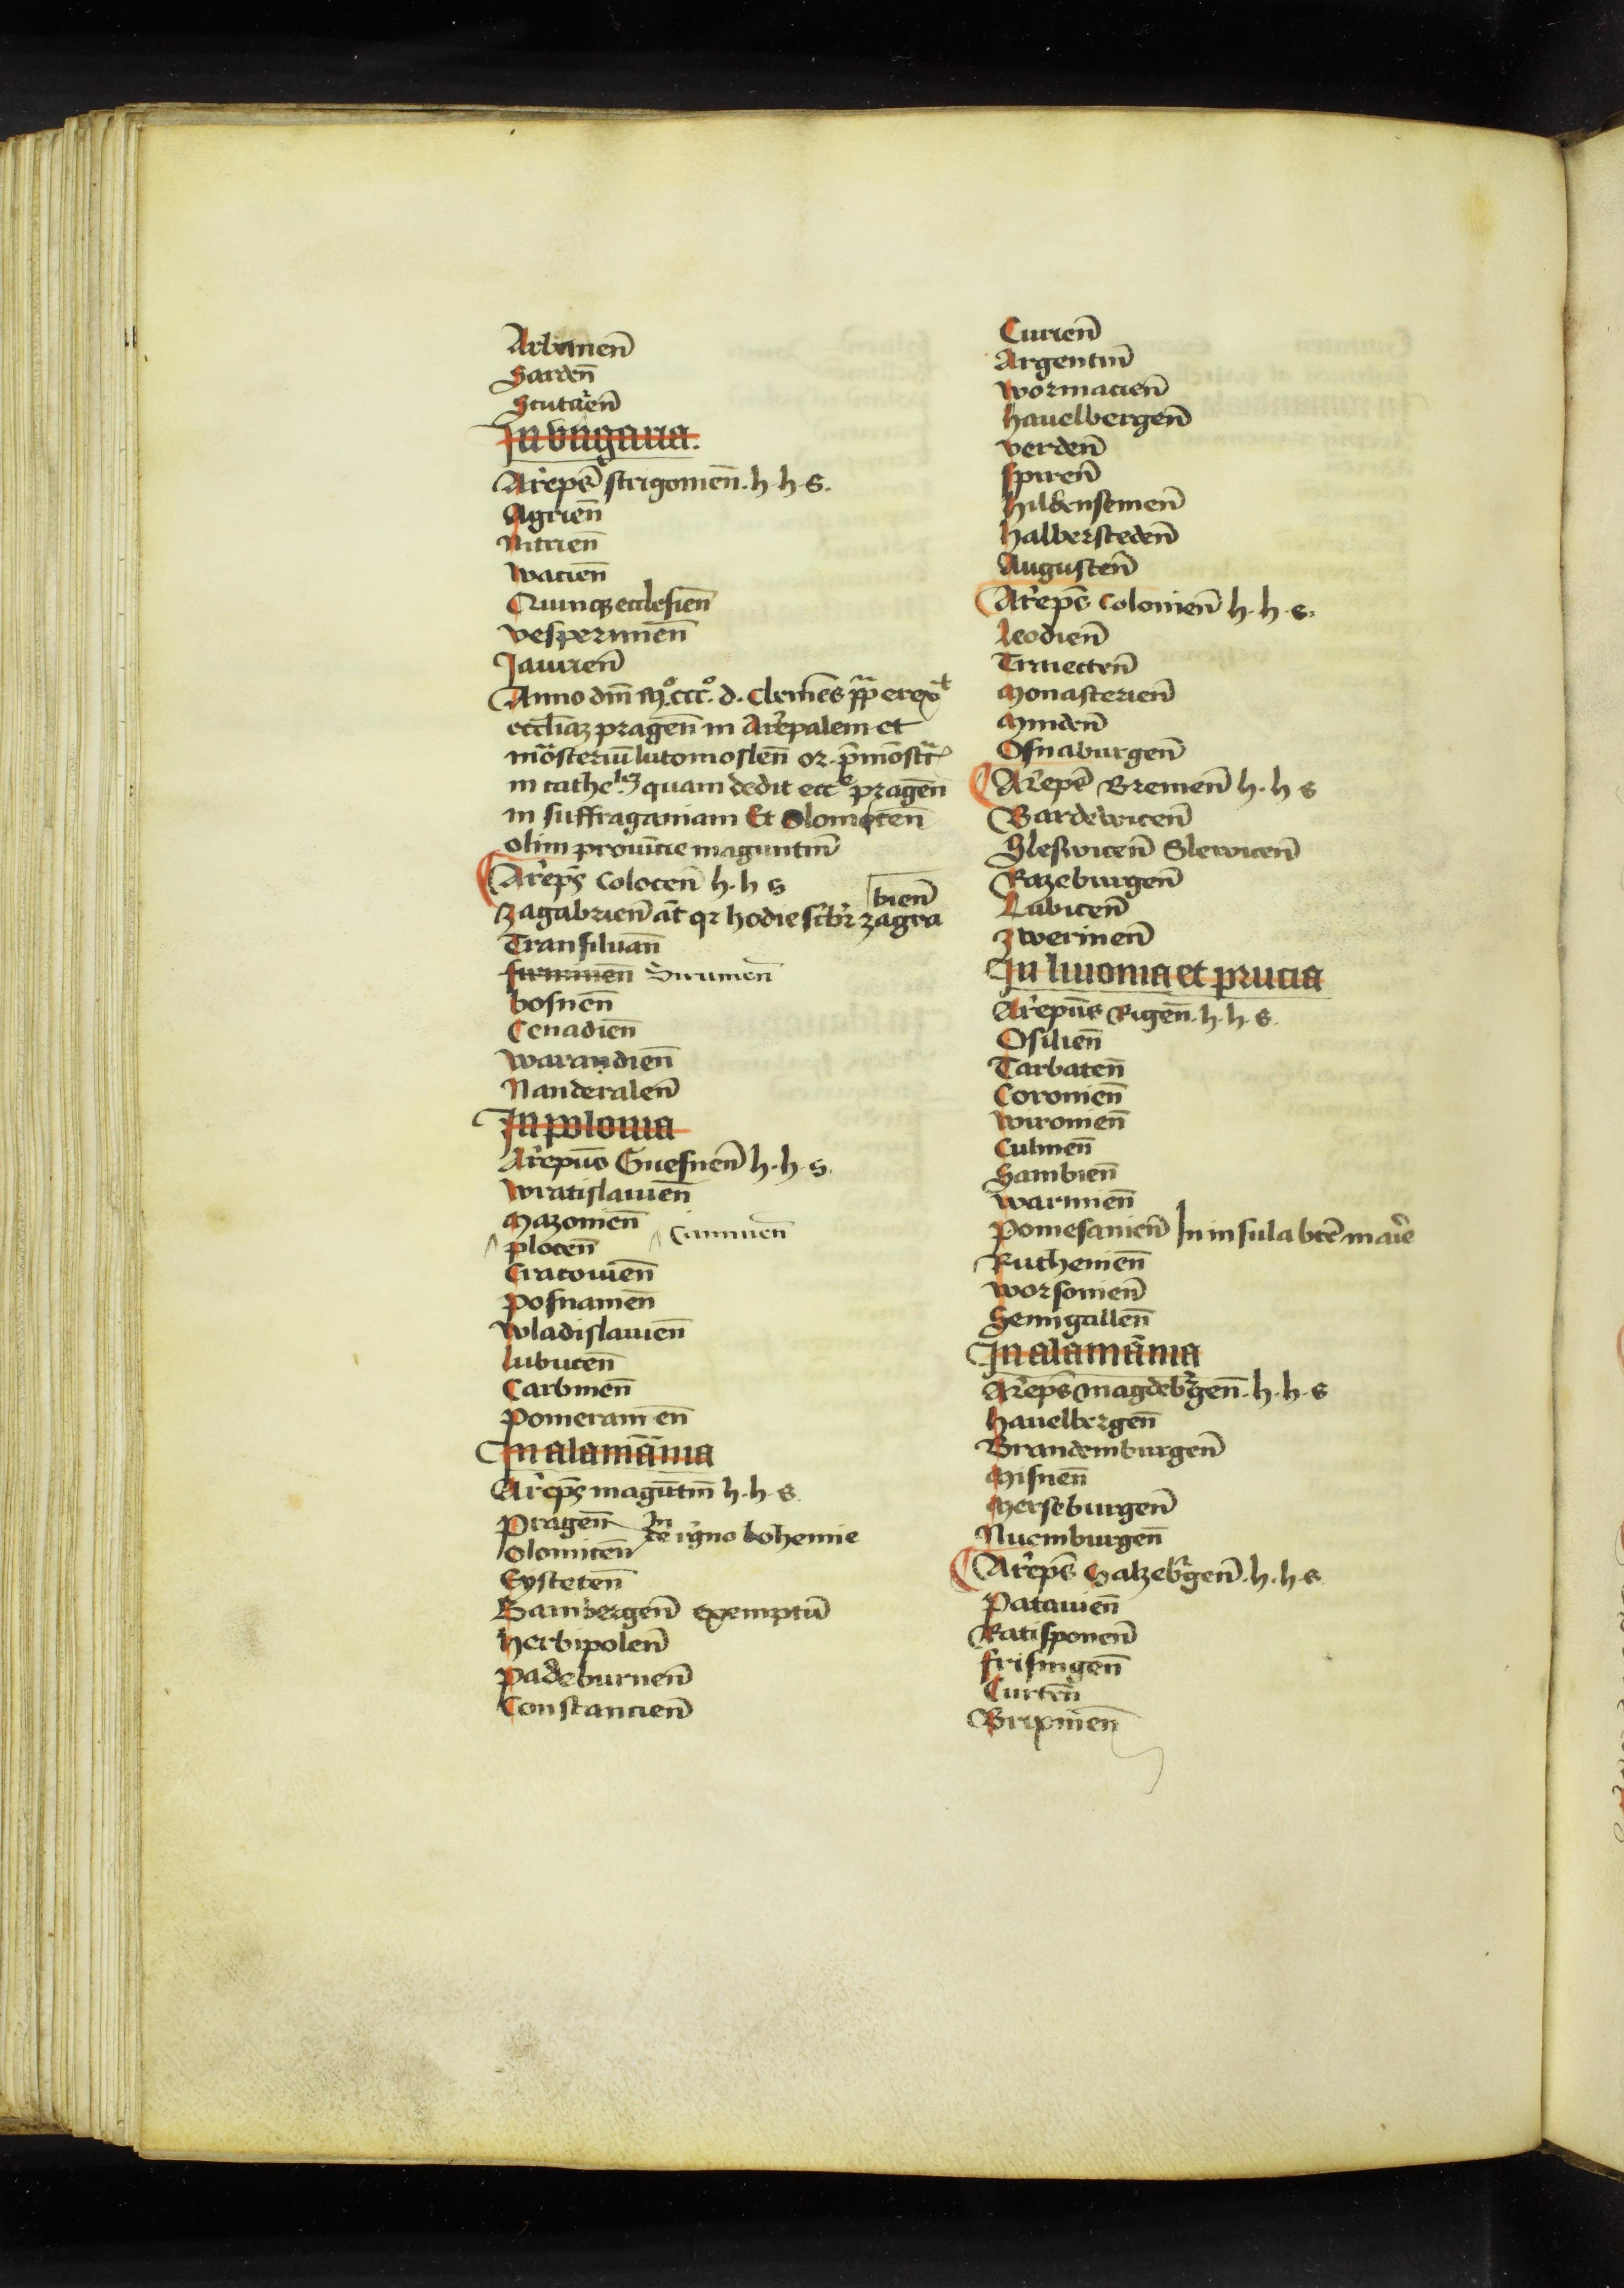 Arbanen̄
Sarden̄
Scutaren̄
In vngaria.
Arepēs strigonien̄. h. h. s.
Agrien̄
Nitrien̄
wacien̄
Quinqꝫ ecclesien̄
vesperimen̄
Jaurien̄
Anno dn̄i Mº.cccº. d. Clemēs ꝓp erexᵗ
eccliāꝫ pragen̄ in Arepalem et
mōsteriū lutomoslen̄ or. p̄mōstr̄
in cathelꝫ quam dedit ecce pragen̄
in suffraganiam Et Olomocen̄
olim prouīcie maguntin̄
Arēpꝰ Colocen̄ h. h s
bien̄
zagabrien̄ at̄ qr hodie scbr̄ zagra
Transiluan̄
sirminen̄ Sirimien̄
bosnen̄
Cenadien̄
warandien̄
Nanderalen̄
In polonia
Arepūs Gnesnen̄ h. h. s.
wratislauien̄
Mazonien̄
plocen̄ Caminen̄
Cracouien̄
posnanien̄
wladislauien̄
lubucen̄
Carbinen̄
pomeranien̄
In alamānia
Arēpꝰ magūtin̄ h. h. s.
Pragen̄ in
Olomucen̄ de rēgno bohemie
Eysteten̄
Bambergen̄ exemptū
herbipolen̄
padeburnen̄
Constancien̄
Curien̄
Argentin̄
wormacien̄
hauelbergen̄
verden̄
spiren̄
hildensemen̄
halbersteden̄
Augusten̄
Arēpūs Colonien̄ h. h. s.
leodien̄
Traiecten̄
Monasterien̄
Minden̄
Osnaburgen̄
Arēpꝰ Bremen̄ h. h s
Bardewicen̄
Sleswicen̄ Slewicen̄
Razeburgen̄
Lubicen̄
zwerinen̄
In liuonia et prucia
Arepūs Rigen̄. h. h. s.
Osilien̄
Tarbaten̄
Coronien̄
wironien̄
Culmen̄
Sambien̄
warmien̄
Pomesanien̄ In insula btē mar̄ie
Ruthenien̄
worsonien̄
Semigallen̄
In alamānia
Arepūs magdeburgen̄. h. h. s
hauelbergen̄
Brandemburgen̄
Misnen̄
Merseburgen̄
Nuemburgen̄
Arēpūs Salzeburgen̄. h. h. s
Patauien̄
Ratisponen̄
frisingen̄
Curcen̄
Brixinen̄